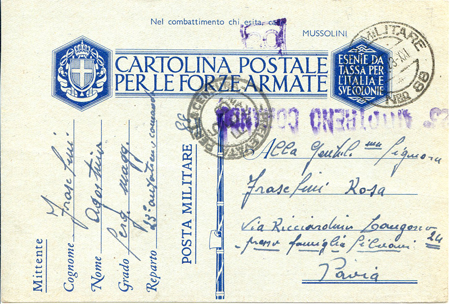 Nel combattimento chi esita, ca
MUSSOLINI
CARTOLINA POSTALE
PER LE FORZE ARMATE
ESENTE DA
TASSA PER
L'ITALIA E
SVE COLONIE
MILITARE
No 88
23° AUTOTRENO COMANDO
POSTA MILITARE 88
Mittente
Cognome Fraschini
Nome Agostino
Grado Serg. magg.
Reparto 23° autotreno comando
Alla Gentil.ma Signora
Fraschini Rosa
Via Ricciardino Langosco 24
presso famiglia
Pavia